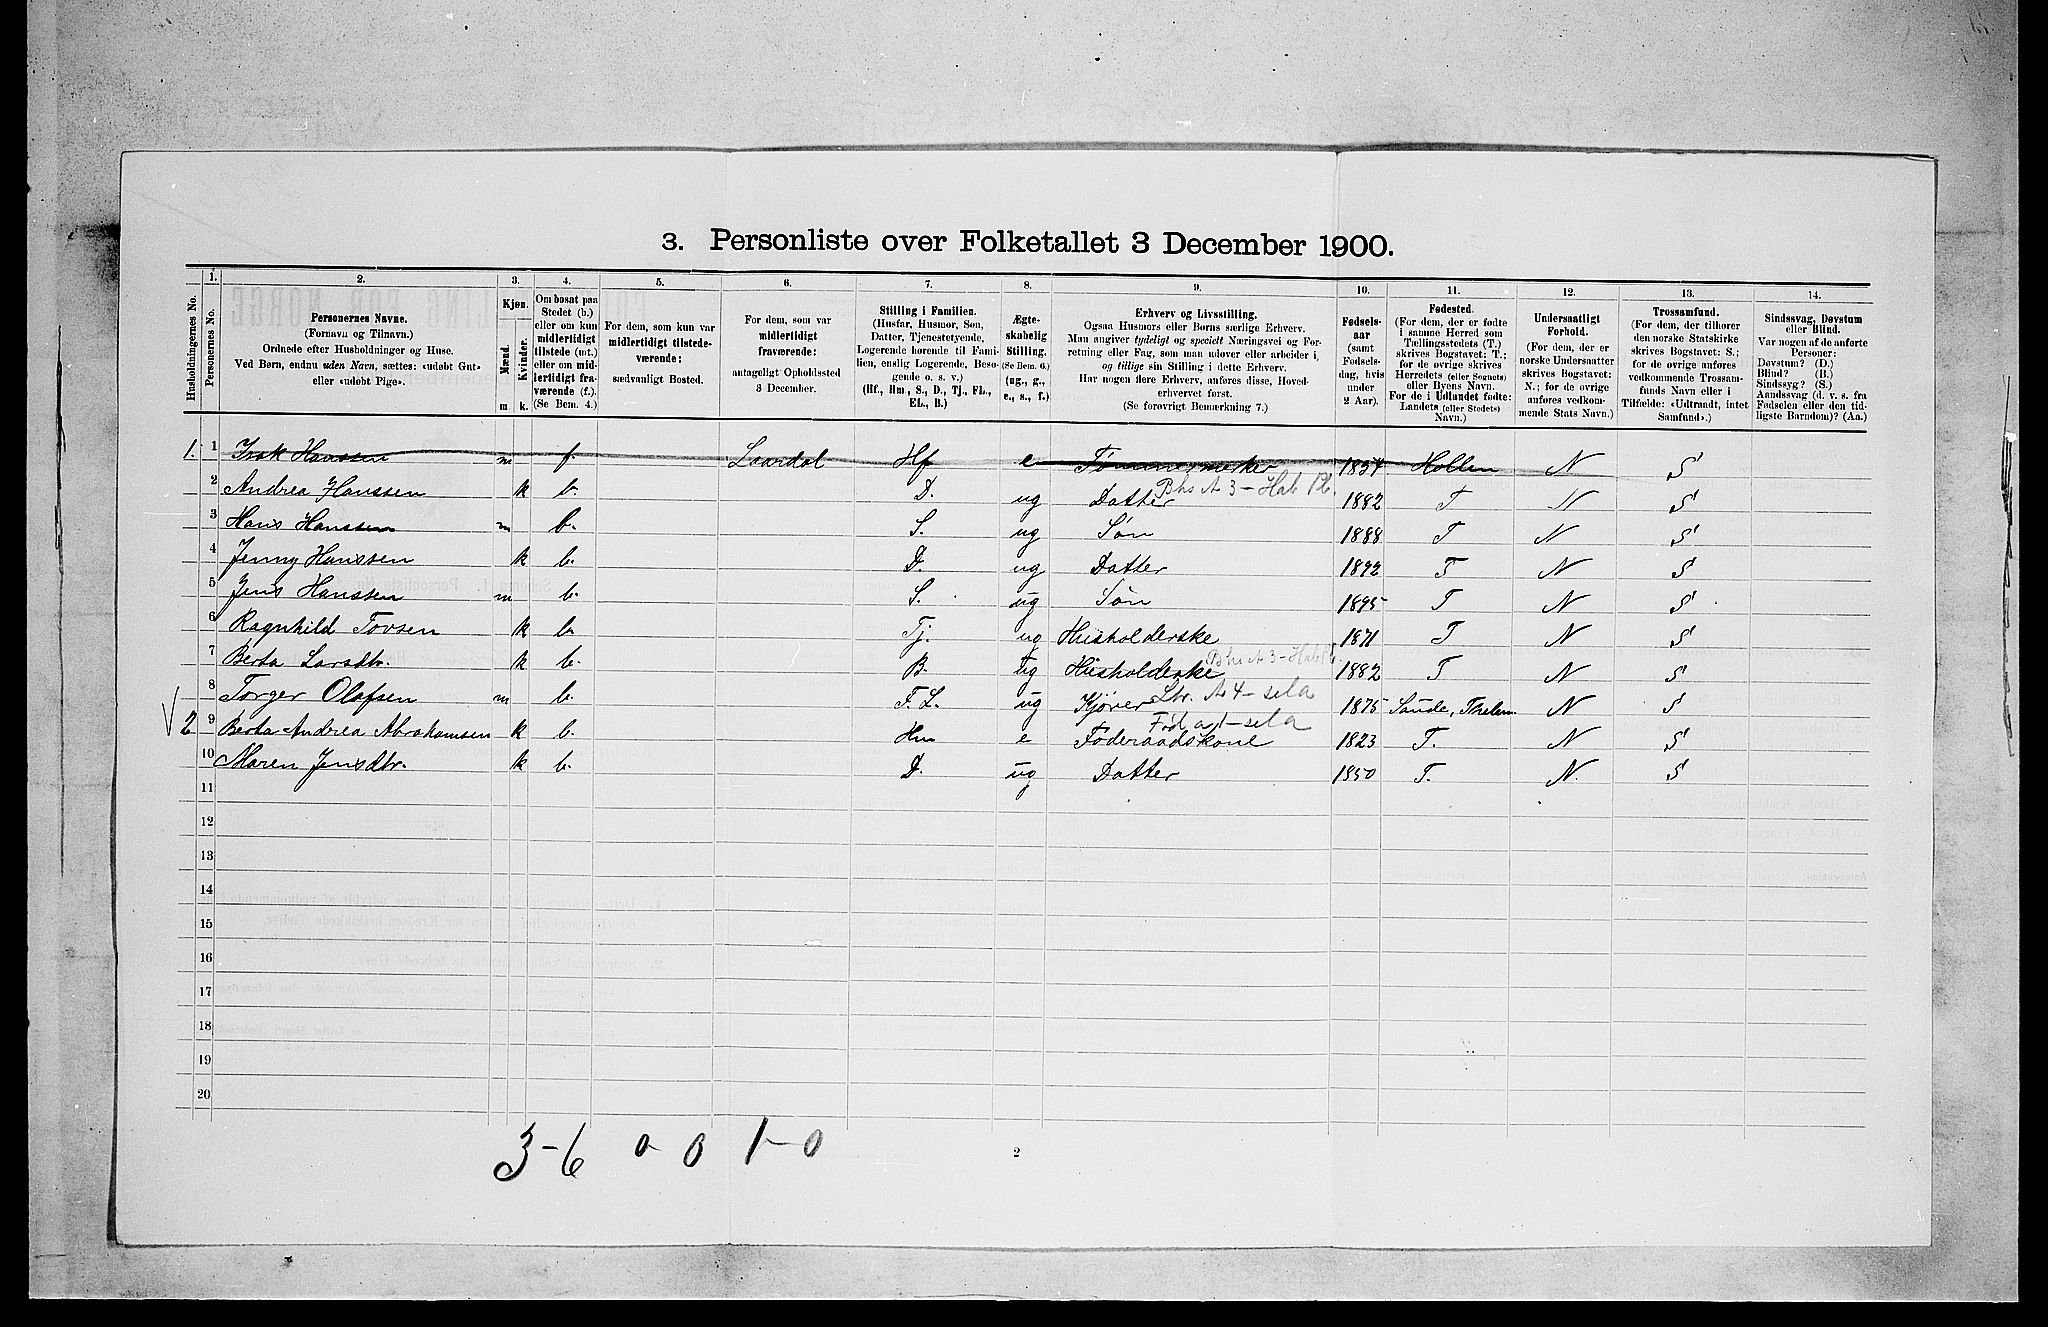 3. Personliste over Folketallet 3 December 1900.
Husholdningernes No.
1. Personernes No.
2. Personernes Navne. (Fornavn og Tilnavn.) Ordnede efter Husholdninger og Huse. Ved Børn, endnu uden Navn, sættes: «udøbt Gut» eller «udøbt Pige».
3. Kjøn. Mænd. m Kvinder. k.
4. Om bosat paa Stedet (b.) eller om kun midlertidigt tilstede (mt.) eller om midlertidigt fraværende (f.). (Se Bem. 4.)
5. For dem, som kun var midlertidigt tilstedeværende: sædvanligt Bosted.
6. For dem, som var midlertidigt fraværende: antageligt Opholdssted 3 December.
7. Stilling i Familien. (Husfar, Husmor, Søn, Datter, Tjenestetyende, Logerende hørende til Familien, enslig Logerende, Besøgende o. s. v.) (Hf., Hm., S., D., Tj., FL., EL., B.)
8. Ægteskabelig Stilling. (Se Bem. 6.) (ug., g., e., s., f.)
9. Erhverv og Livsstilling. Ogsaa Husmors eller Børns særlige Erhverv. Man angiver tydeligt og specielt Næringsvei og Forretning eller Fag, som man udover eller arbeider i, og tillige sin Stilling i dette Erhverv. Har nogen flere Erhverv, anføres disse, Hovederhvervet først. (Se forøvrigt Bemærkning 7.)
10. Fødselsaar (samt Fødselsdag, hvis under 2 Aar).
11. Fødested. (For dem, der er fødte i samme Herred som Tællingsstedets (T.) skrives Bogstavet: T.; for de øvrige skrives Herredets (eller Sognets) eller Byens Navn. For de i Udlandet fødte: Landets (eller Stedets) Navn.)
12. Undersaatligt Forhold. (For dem, der er norske Undersaatter skrives Bogstavet: N.; for de øvrige anføres vedkommende Stats Navn.)
13. Trossamfund. (For dem, der tilhører den norske Statskirke skrives Bogstavet: S.; for de øvrige anføres vedkommende Trossamfunds Navn eller i Tilfælde: «Udtraadt, intet Samfund».)
14. Sindssvag, Døvstum eller Blind. Var nogen af de anførte Personer: Døvstum? (D.) Blind? (B.) Sindssyg? (S.) Aandssvag (d. v. s. fra Fødselen eller den tidligste Barndom)? (Aa.)
1. 1 Isak Hanssen m f. Laardal Hf e Tømmermerker 1854 Hollen N S
2 Andrea Hanssen k b. D. ug Datter Bhs A 3 - Hab Pb. 1882 T N S
3 Hans Hanssen m b. S. ug Søn 1888 T N S
4 Jenny Hanssen k b. D. ug Datter 1892 T N S
5 Jens Hanssen m b. S. ug Søn 1895 T N S
6 Ragnhild Tovsen k b. Tj. ug Husholderske 1871 T N S
7 Berta Larsdtr. k b. B. ug Husholderske Bhs A 3 - Hab Pb. 1882 T N S
8 Torger Olafsen m b. F. L. ug Kjører A 4 - sela 1875 Saude, Thelem. N S
2 9 Berta Andrea Abrahamsen k b. Hm e Føderaadskone Fød a 1 - sela 1823 T. N S
10 Maren Jensdtr. k b. D. ug Datter 1850 T. N. S
11
12
13
14
15
16
17
18
19
20
3-6 0 0 1-0
2